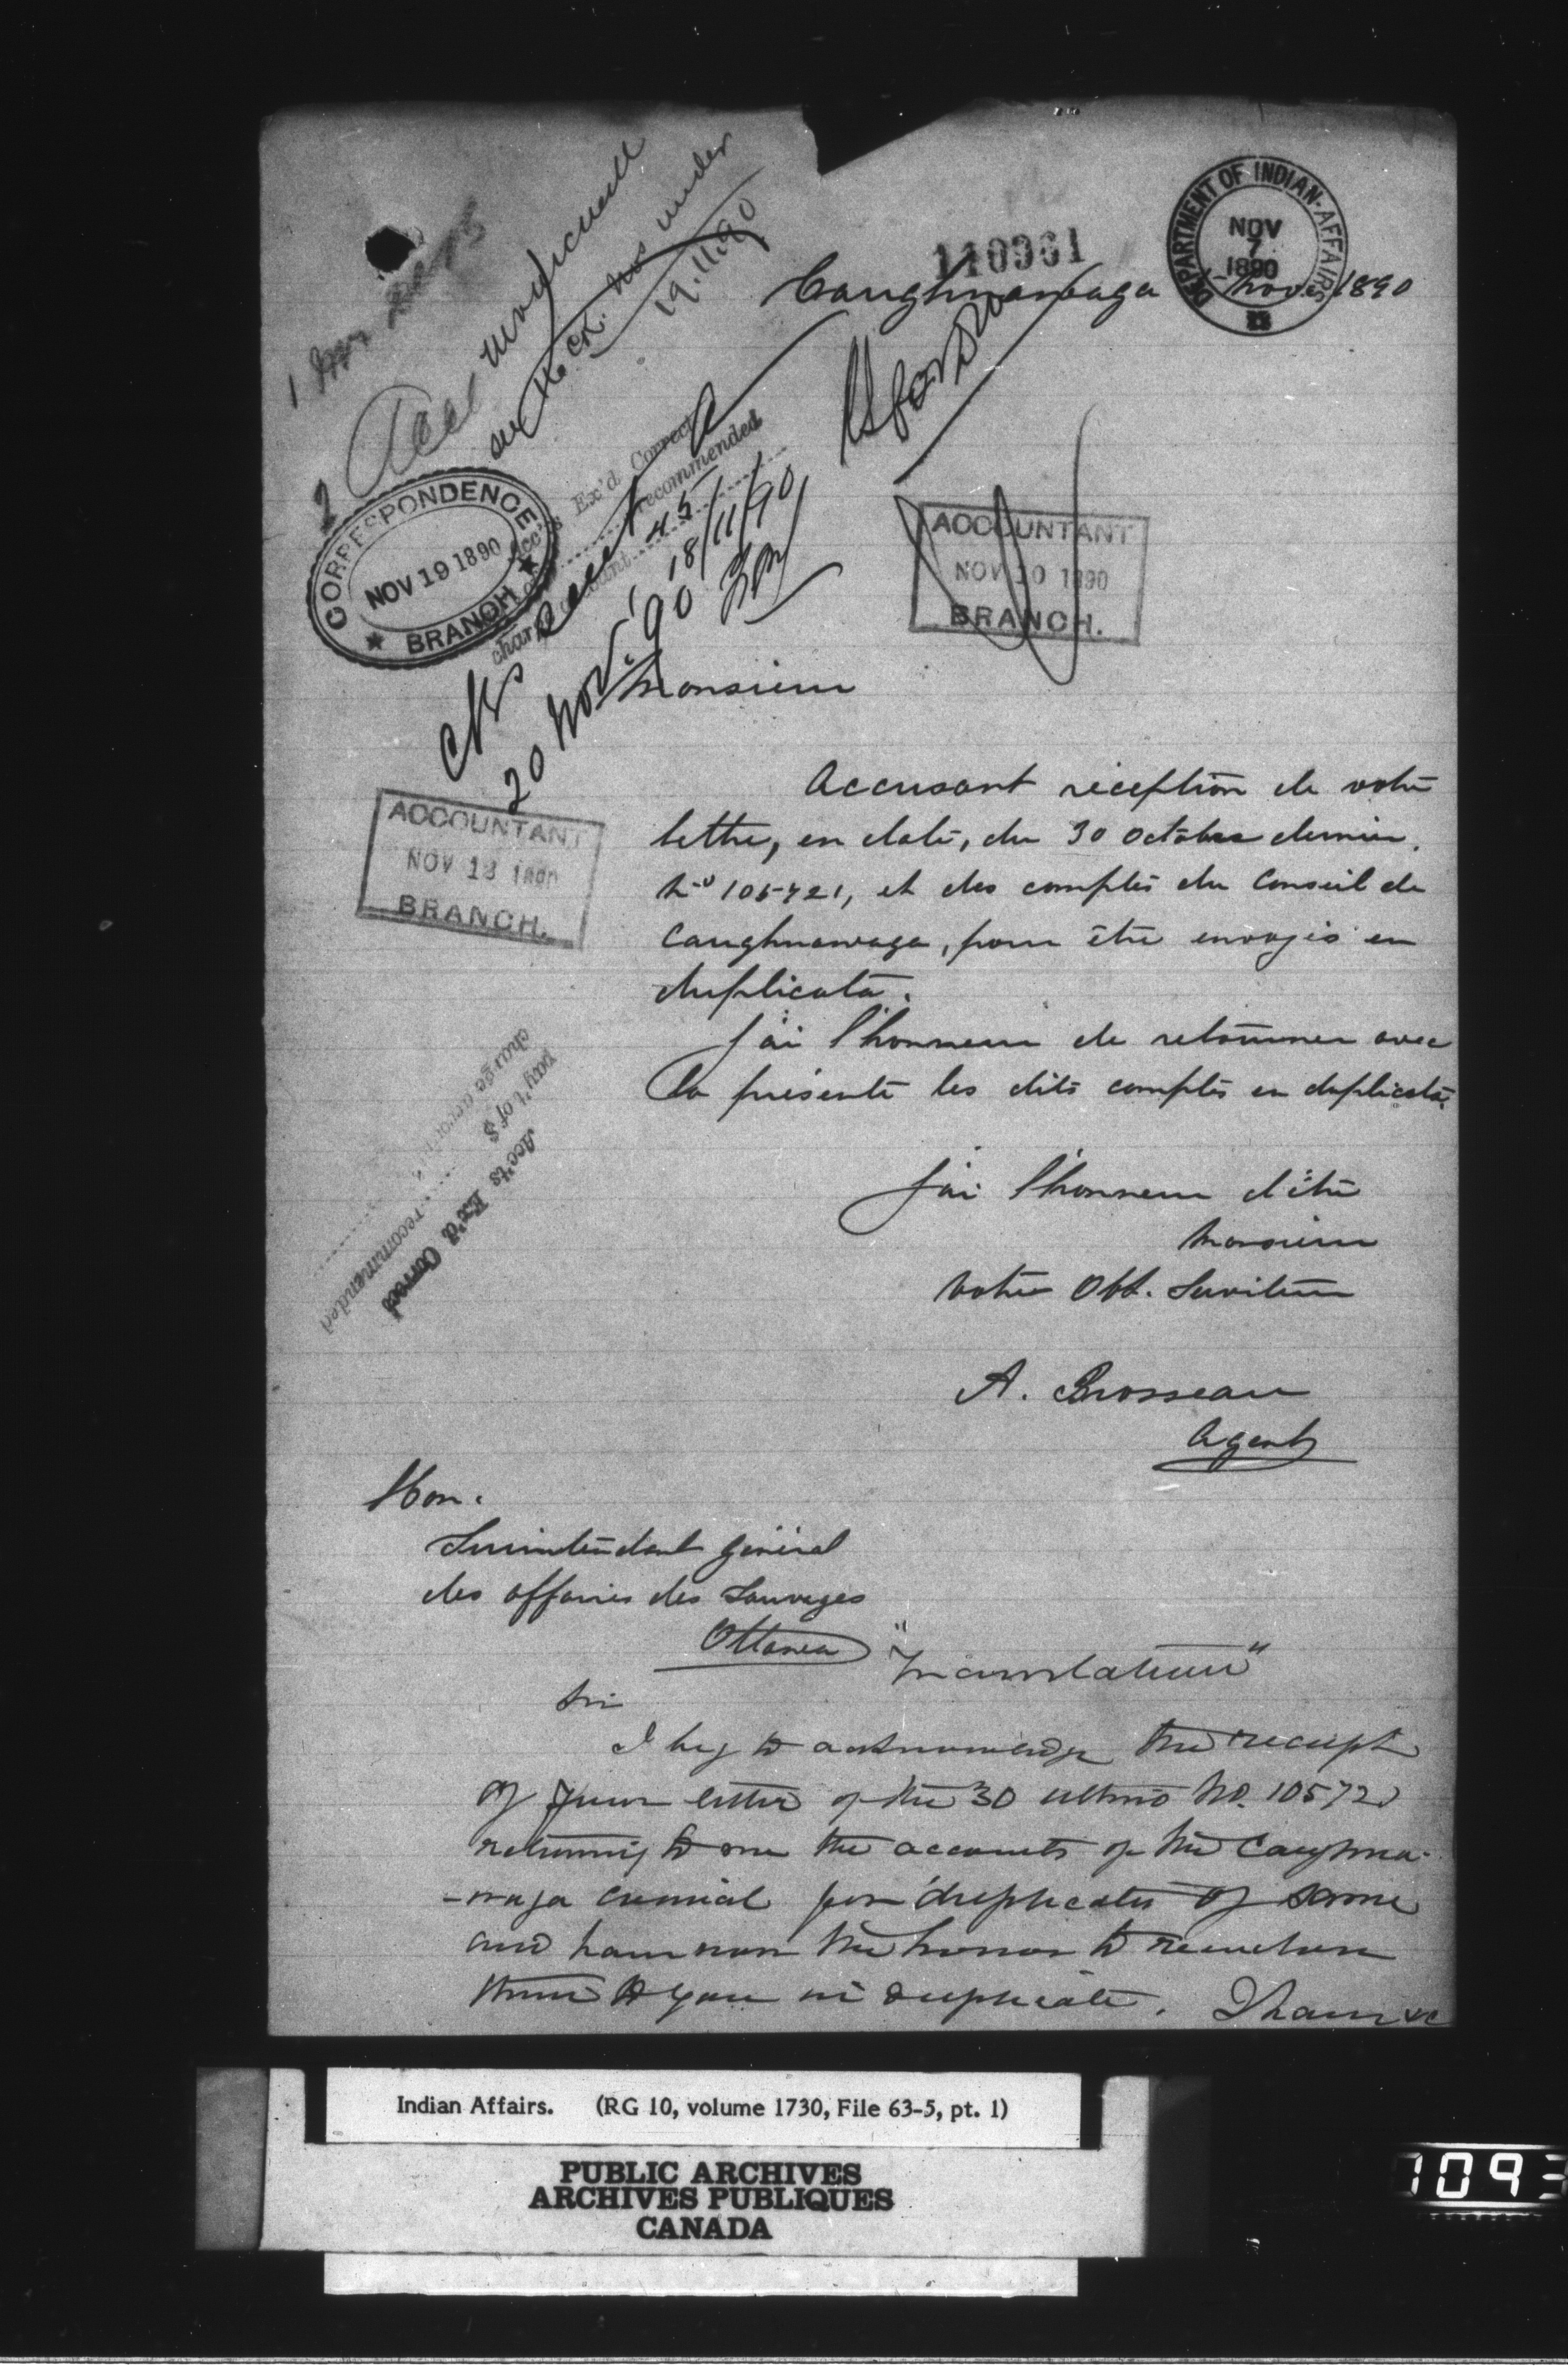 110961
DEPARTMENT OF INDIAN AFFAIRS
NOV
7
1890
Caughnawaga Nov. 1890
on the ck. no under
19.11.90
CORRESPONDENCE
NOV 19 1890
BRANCH
Acc'ts Ex'd Correct
recommended
18/11/90
20 Nov. '90
ACCOUNTANT
NOV 20 1890
BRANCH.
Monsieur
ACCOUNTANT
NOV 13 1890
BRANCH.
Accusant réception de votre
lettre, en date, du 30 Octobre dernier,
No 105721, et des comptes du Conseil de
Caughnawaga, pour être envoyés en
duplicata.
J'ai l'honneur de retourner avec
la présente les dits comptes en duplicata.
Acc'ts Ex'd Correct
pay't of $ recommended
charge
J'ai l'honneur d'être
Monsieur
Votre Obt. Serviteur
A. Brosseau
Agent
Hon.
Surintendant Général
des affaires des Sauvages
Ottawa
"Translation"
Sir
I beg to acknowledge the receipt
of your letter of the 30 ultimo No. 105721
returning to me the accounts of the Caughna-
-waga council for duplicates of same
and have now the honor to return
them to you in duplicate. I have &c
Indian Affairs. (RG 10, volume 1730, File 63-5, pt. 1)
PUBLIC ARCHIVES
ARCHIVES PUBLIQUES
CANADA
1093